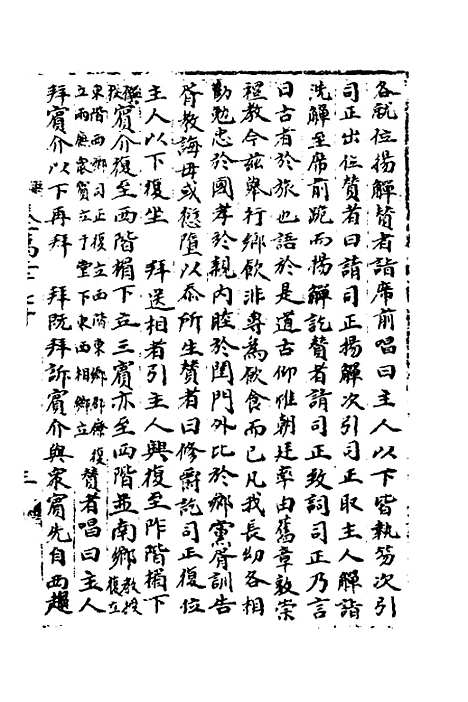 各就位揚觶贊者詣席前唱曰主人以下皆執笏次引
司正出位贊者曰請司正揚觶次引司正取主人觶詣
洗觶至席前跪而揚觶訖贊者請司正致詞司正乃言
曰古者於旅也語於是道古仰惟朝廷率由舊章敦崇
禮教今茲舉行鄉飲非專為飲食而已凡我長幼各相
勸勉忠於國孝於親內睦於閨門外比於鄉黨胥訓告
胥教誨毋或愆墮以忝所生贊者曰修爵訖司正復位
主人以下復坐 拜送相者引主人興復至阼階楣下
賓介復至西階楣下立三賓亦至西階並南鄉
東階西鄉司正復立西階東鄉
立兩廡眾賓立于堂下東西相鄉立
贊者唱曰主人
拜賓介以下再拜 拜既拜訴賓介與眾賓先自西趨